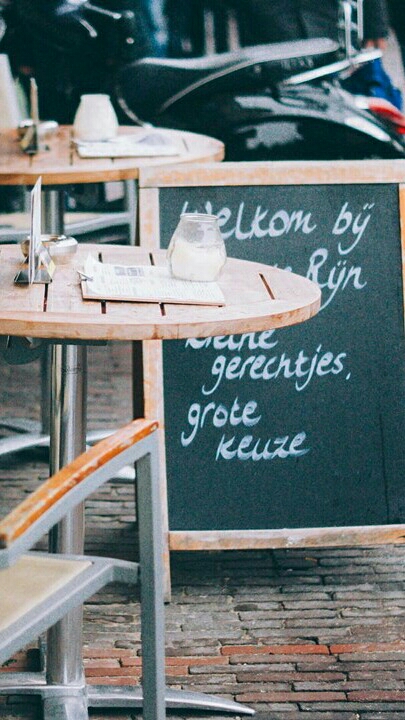 Welkom bÿ
Rÿn
kleine
gerechtjes,
grote
keuze